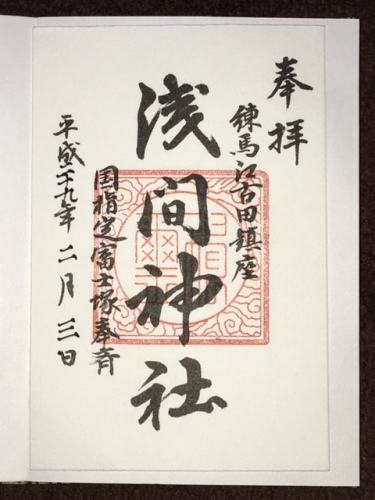 奉拝
練馬江古田鎮座
浅間神社
国指定富士塚奉斉
平成二十九年二月三日